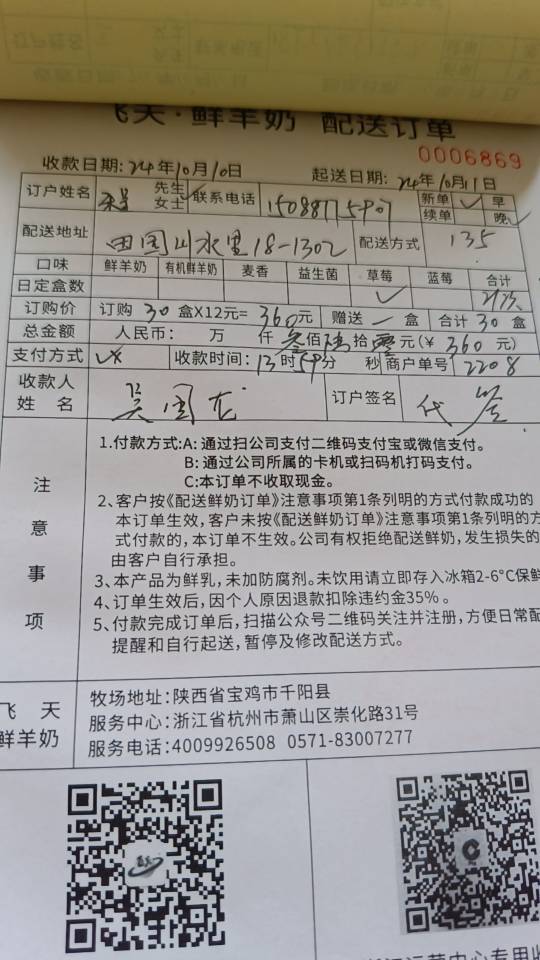 飞天·鲜羊奶 配送订单
0006869
收款日期:24年10月10日 起送日期:24年10月11日
订户姓名 先生 女士 联系电话 新单 ✓ 早
续单 晚 ✓
配送地址 田园山水里18-1302 配送方式 135
口味 鲜羊奶 有机鲜羊奶 麦香 益生菌 草莓 蓝莓 合计
日定盒数 ✓
订购价 订购 30 盒X12元= 360元 赠送 一 盒 合计 30 盒
总金额 人民币: 万 仟 叁佰陆拾零元(¥ 360 元)
支付方式 收款时间:13时59分 秒 商户单号 2208
收款人姓名 吴国龙 订户签名 代签
注意事项
1.付款方式:A: 通过扫公司支付二维码支付宝或微信支付。
B: 通过公司所属的卡机或扫码机打码支付。
C:本订单不收取现金。
2、客户按《配送鲜奶订单》注意事项第1条列明的方式付款成功的
本订单生效,客户未按《配送鲜奶订单》注意事项第1条列明的方
式付款的,本订单不生效。公司有权拒绝配送鲜奶,发生损失的
由客户自行承担。
3、本产品为鲜乳,未加防腐剂。未饮用请立即存入冰箱2-6°C保鲜
4、订单生效后,因个人原因退款扣除违约金35%。
5、付款完成订单后,扫描公众号二维码关注并注册,方便日常配
提醒和自行起送,暂停及修改配送方式。
飞天
鲜羊奶
牧场地址:陕西省宝鸡市千阳县
服务中心:浙江省杭州市萧山区崇化路31号
服务电话:4009926508 0571-83007277